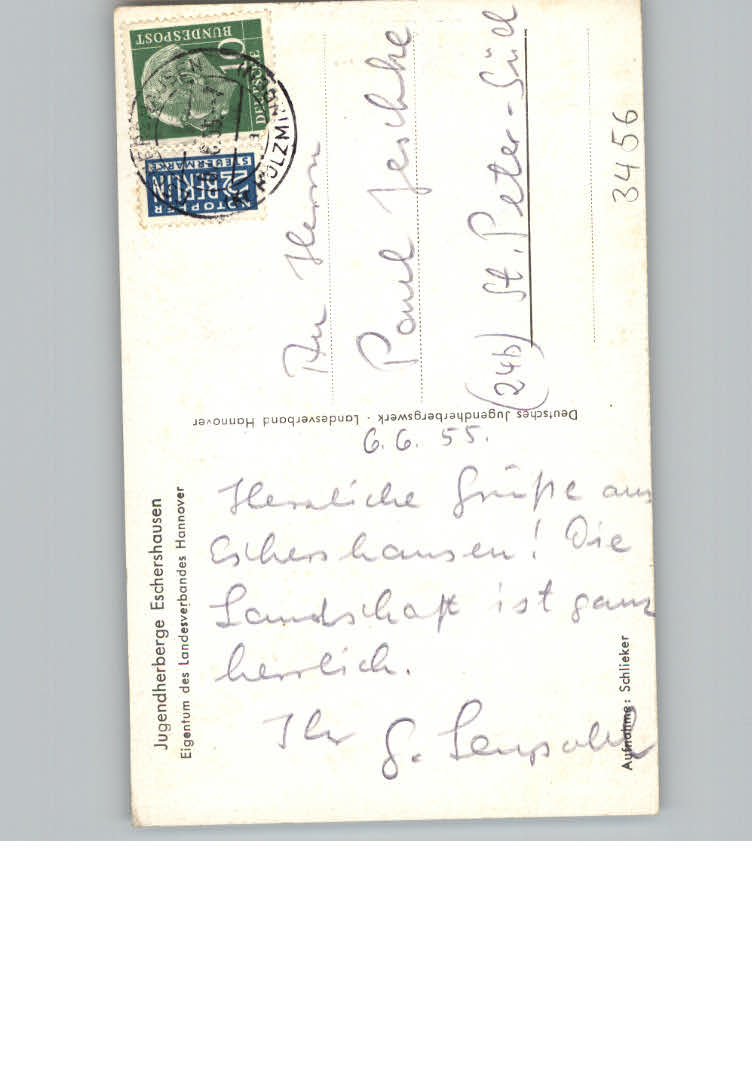 Jugendherberge Eschershausen
Eigentum des Landesverbandes Hannover
6. 6. 55.
Herzliche Grüße aus
Eschershausen! Die
Landschaft ist ganz
herrlich.
Ihr G.
Aufnahme: Schlieker
Deutsches Jugendherbergswerk · Landesverband Hannover
DEUTSCHE
BUNDESPOST
10
NOTOPFER
2 BERLIN
STEUERMARKE
An Herrn
Paul Jeschke
(24b) St. Peter-Süd
3456